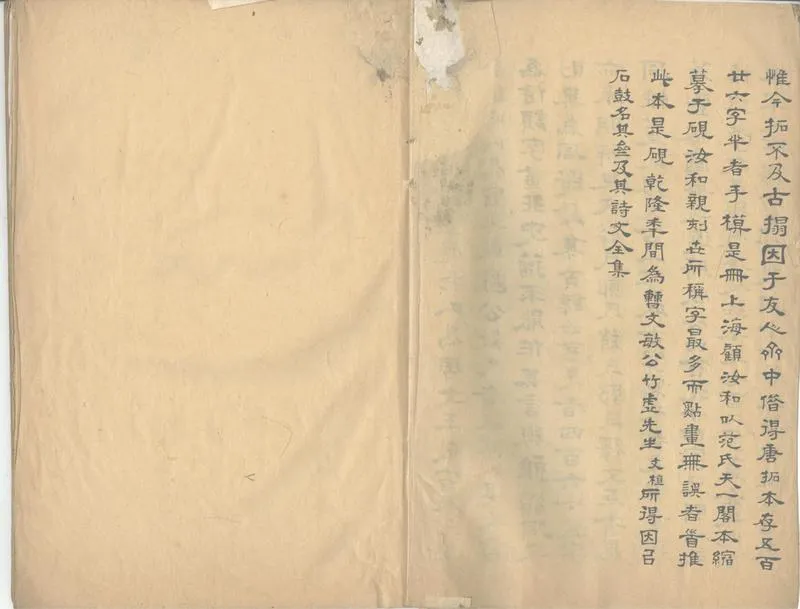 惟今拓不及古搨因于友人處中借得唐拓本存五百
廿六字半者手模是冊上海顧汝和以范氏天一閣本縮
摹于硯汝和親刻世所稱字最多而點畫無誤者首推
此本是硯乾隆季間為瞿文敏公竹虛先生文植所得因召
石鼓名其盦及其詩文全集